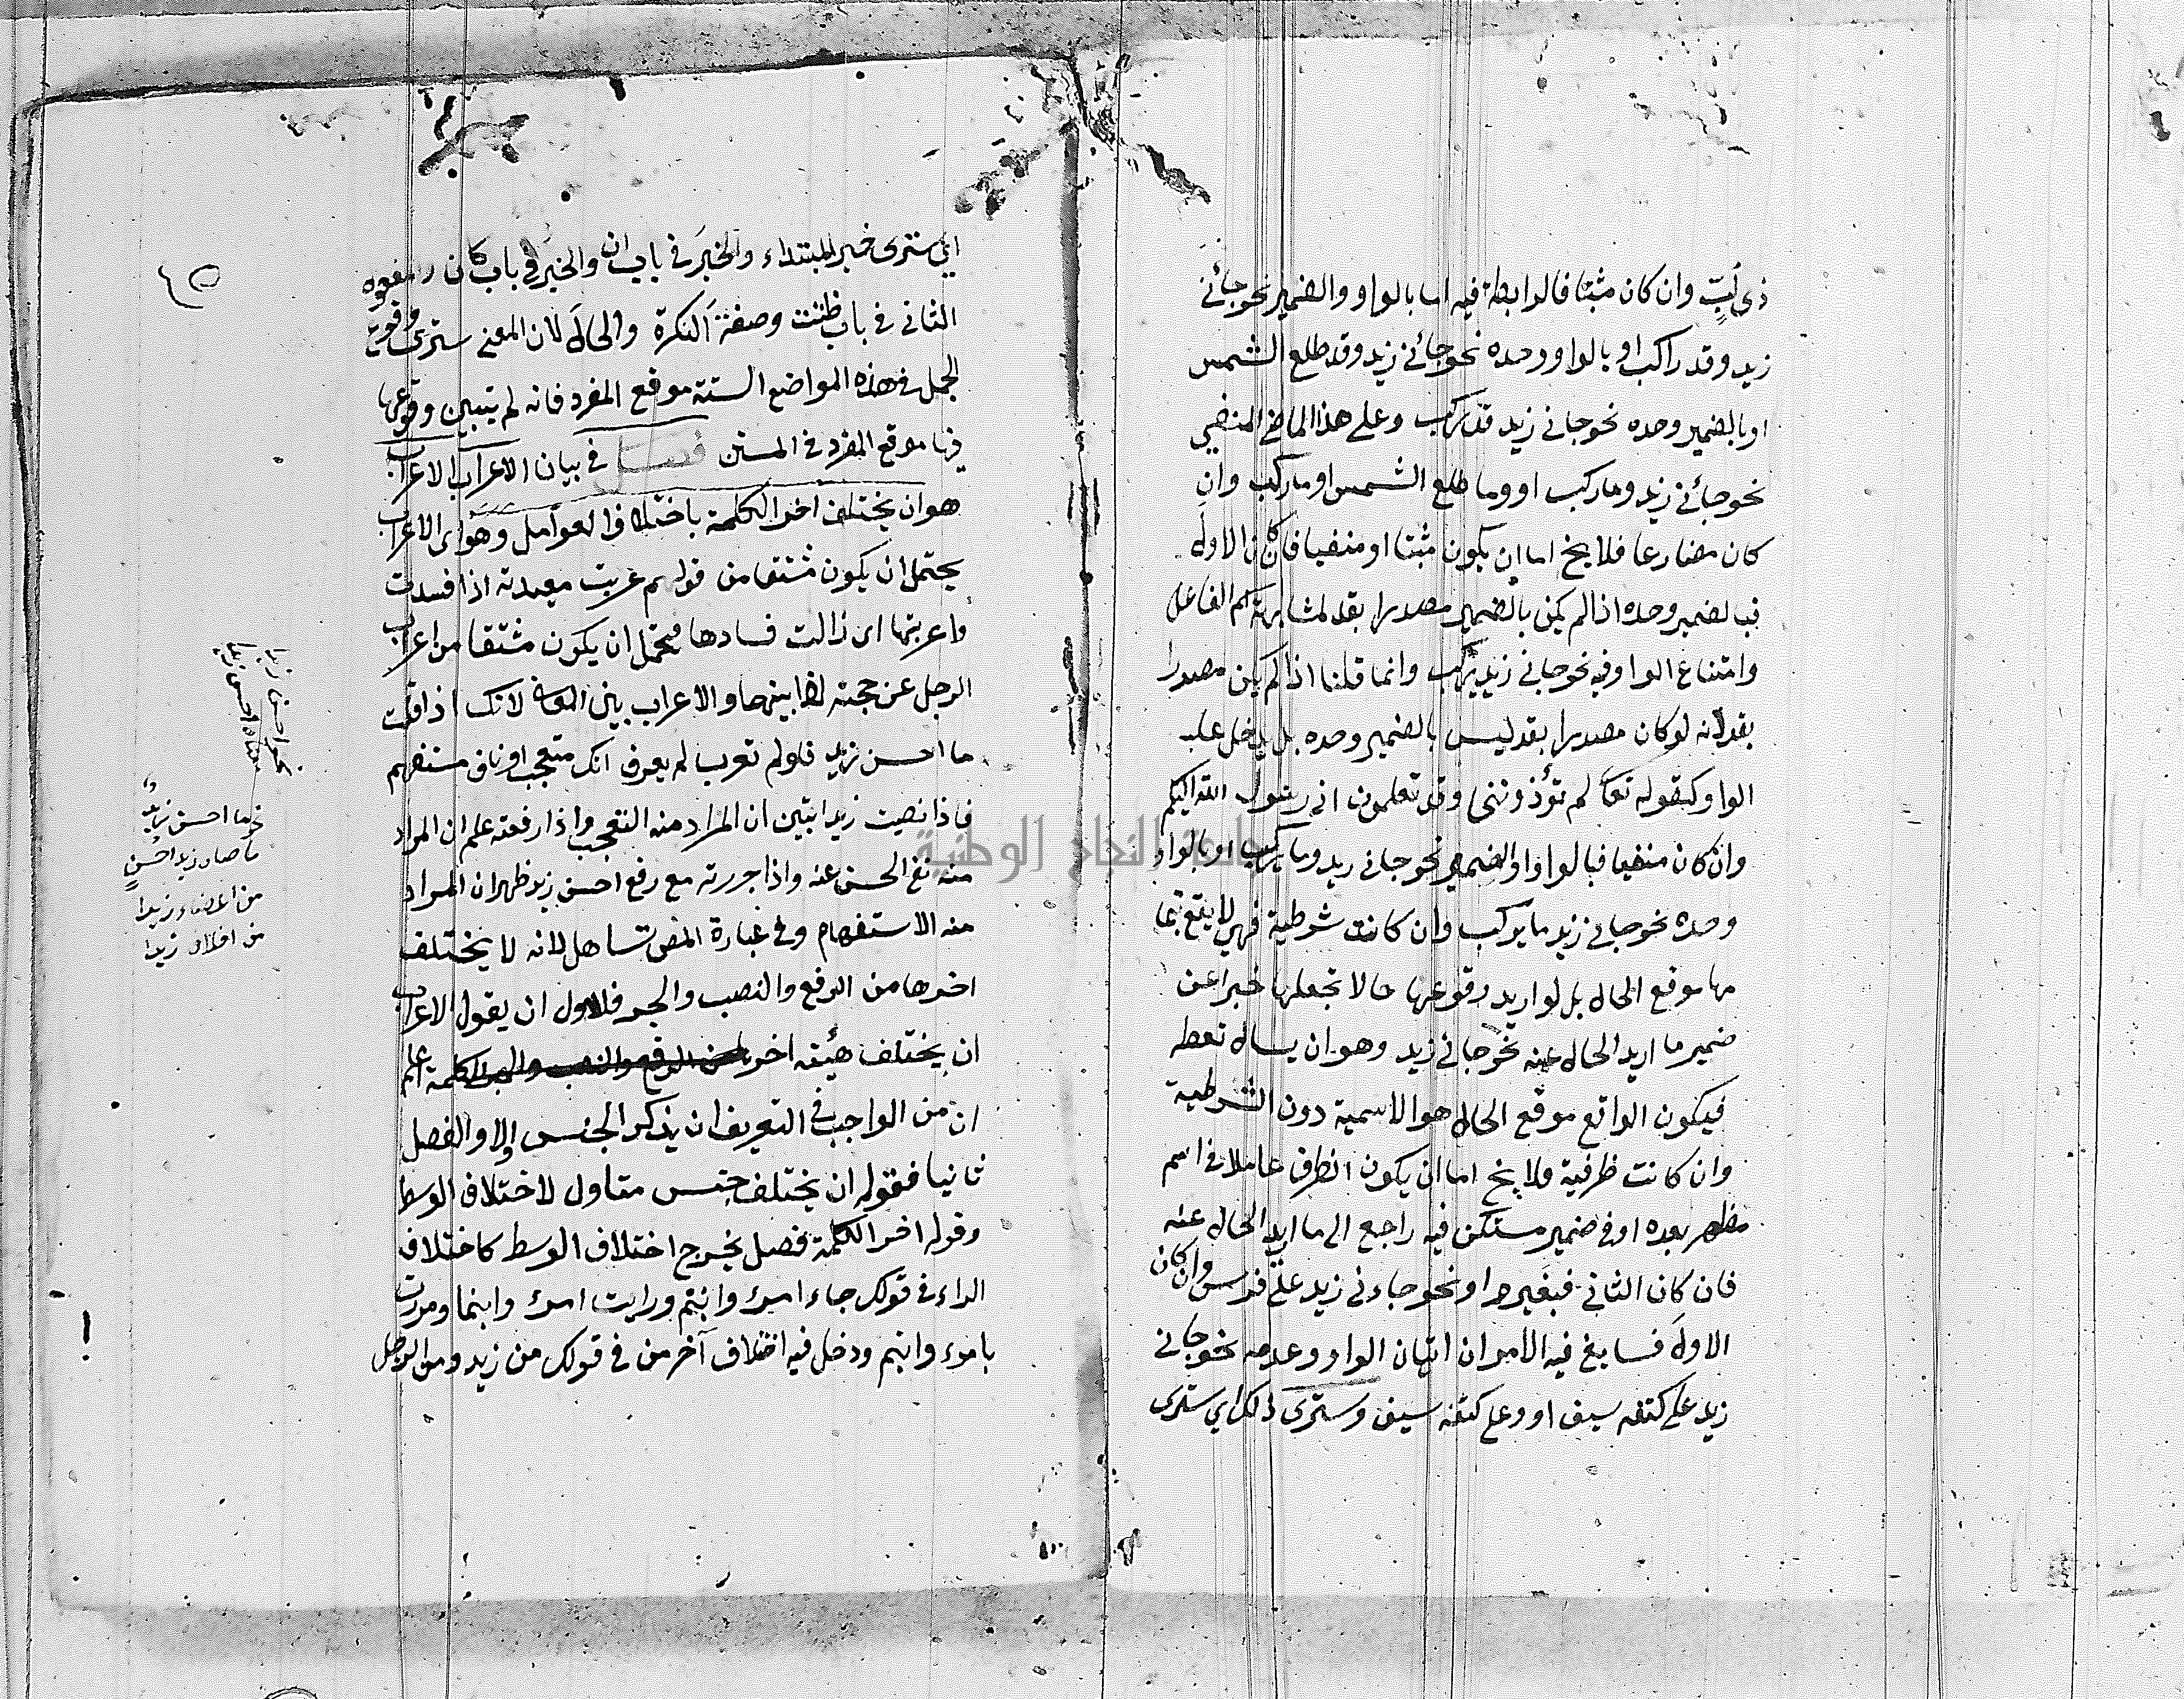 ذى لُبٍّ وان كان مثبتا فالرابطة فيه اما بالواو والضمير نحو جائنى
زيد وقد راكب او بالواو وحده نحو جائنى زيد وقد طلع الشمس
او بالضمير وحده نحو جانى زيد قد ركب وعلى هذا الماضى المنفى
نحو جائنى زيد وما ركب او وما طلع الشمس او ما ركب وان
كان مضارعا فلا يخ اما ان يكون مثبتا او منفيا فان كان الاول
فبالضمير وحده اذا لم يكن بالضمير مصدرا بقد لمشابهته اسم الفاعل
وامتناع الواو فيه نحو جانى زيد يركب وانما قلنا اذا لم يكن مصدرا
بقد لانه لو كان مصدرا بقد ليس بالضمير وحده بل يدخل عليه
الواو كقوله تعالى لم تؤذوننى وقد تعلمون انى رسول الله اليكم
وان كان منفيا فبالواو او الضمير نحو جانى زيد وما يركب او بالواو
وحده نحو جانى زيد ما يركب وان كانت شرطية فهي لا يقع
موقع الحال بل لو اريد وقوعها حالا تجعلها خبرا عن
ضمير ما اريد الحال عنه نحو جانى زيد وهو ان يسال تعطه
فيكون الواقع موقع الحال هو الاسمية دون الشرطية
وان كانت ظرفية فلا يخ اما ان يكون الظرف عاملا فى اسم
مظهر بعده او فى ضمير مستكن فيه راجع الى ما اريد الحال عنه
فان كان الثانى فبغير واو نحو جاءنى زيد على فرس وان كان
الاول فسايغ فيه الامران اتيان الواو وعدمه نحو جانى
زيد على كتفه سيف او وعلى كتفه سيف وسترى ذلك اي سترى
اي سترى خبر المبتداء والخبر فى باب ان والخبر فى باب كان ومفعوله
الثانى فى باب ظننت وصفة النكرة والحال لان المعنى سترى وقوع
الجمل فى هذه المواضع الستة موقع المفرد فانه لم يتبين وقوعها
فيها موقع المفرد فى المتن فصل فى بيان الاعراب الاعراب
هو ان يختلف اخر الكلمة باختلاف العوامل وهو اى الاعراب
يحتمل ان يكون مشتقا من قولهم عربت معدته اذا فسدت
واعربتها اى زالت فسادها ويحتمل ان يكون مشتقا من اعراب
الرجل عن حجته اذا بينها والاعراب يبنى المعنى لانك اذا قلت
ما احسن زيد فلو لم تعرب لم يعرف انك متعجب او نافى مستفهم
فاذا نصبت زيدا تبين ان المراد منه التعجب واذا رفعته علم ان المراد
منه نفى الحسن عنه واذا جررته مع رفع احسن زيد ظهر ان المراد
منه الاستفهام وفى عبارة المص تساهل لانه لا يختلف
اخرها من الرفع والنصب والجر فلاول ان يقول الاعراب
ان يختلف هيئة اخر الكلمة اعلم
ان من الواجب فى التعريف ان يذكر الجنس اولا والفصل
ثانيا فقوله ان يختلف جنس متناول لاختلاف الوسط
وقوله اخر الكلمة فصل يخرج اختلاف الوسط كاختلاف
الراء فى قولك جاء امرؤ وابنم ورايت امرء وابنما ومررت
بامرء وابنم ودخل فيه اختلاف آخر من فى قولك من زيد ومن الرجل
نحو ما احسن زيد
ما صار زيد احسن
من اعضاء زيدا
من اخلاق زيدا
جامعة النجاح الوطنية